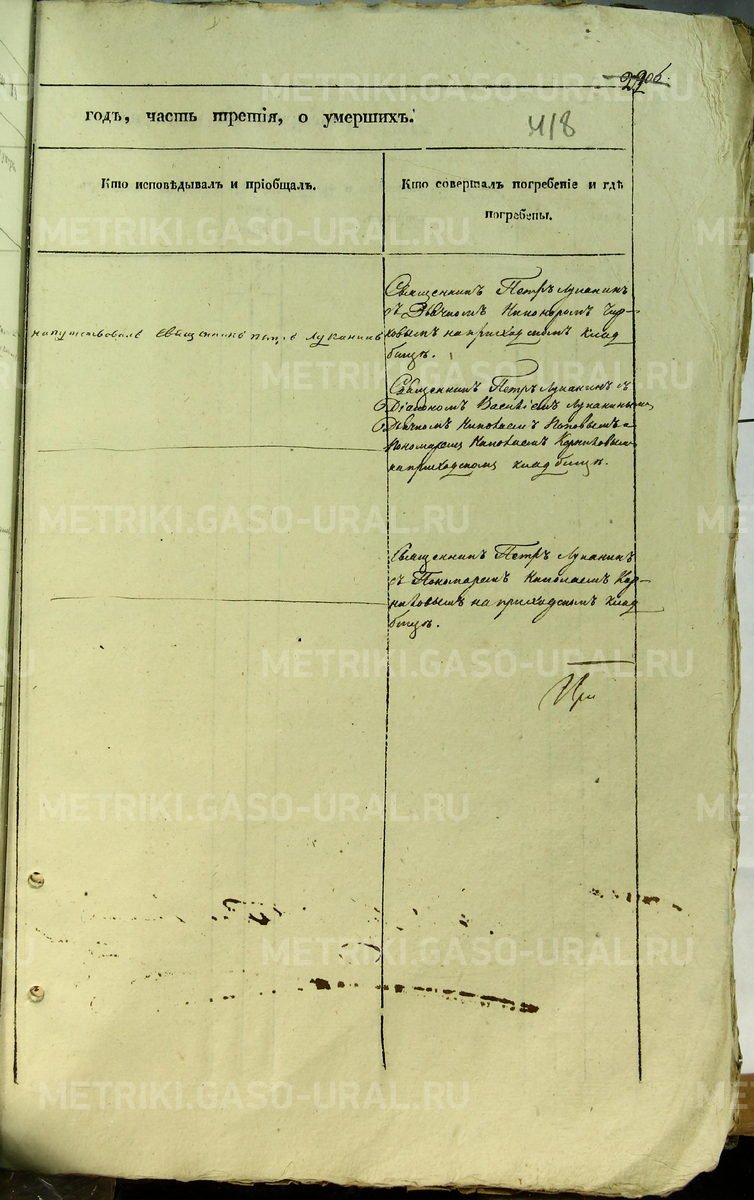 годъ, часть третія, о умершихъ.
418
Кто исповѣдывалъ и пріобщалъ.
Кто совершалъ погребеніе и гдѣ
погребены.
напутствовалъ Священникъ Петръ Луканинъ
Священникъ Петръ Луканинъ
съ Дьячкомъ
на приходскомъ клад
бищѣ.
Священникъ Петръ Луканинъ съ
Діакономъ Василіемъ Луканинымъ
Дьячкомъ Николаемъ Поповымъ и
Пономаремъ Николаемъ Корниловым
на приходскомъ кладбищѣ.
Священникъ Петръ Луканинъ
съ Пономаремъ Николаемъ Кор-
ниловымъ на приходскомъ клад
бищѣ.
METRIKI.GASO-URAL.RU